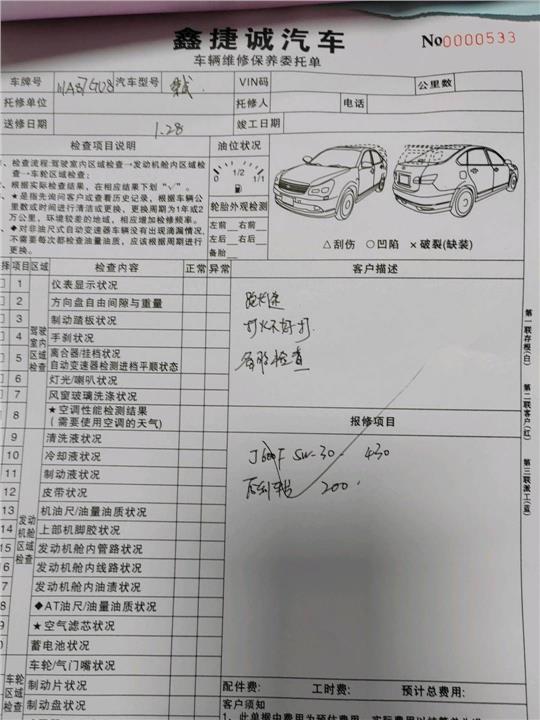 鑫捷诚汽车
No0000533
车辆维修保养委托单
车牌号 汽车型号 VIN码 公里数
托修单位 托修人 电话
送修日期 1.28 竣工日期
检查项目说明 油位状况
、检查流程:驾驶室内区域检查→发动机舱内区域检
查→车轮区域检查;
、根据实际检查结果,在相应结果下划“∨”。
、★是指先询问客户或查看历史记录,根据车辆公
里数或时间进行清洁或更换,更换周期为1年或2
万公里,环境较差的地域,相应增加检修频率。
、◆对非油尺式自动变速器车辆没有出现滴漏情况,
不需要每次都检查油量油质,应该根据周期进行
更换。
0 1/2 1/1
轮胎外观检测
左前 右前
左后 右后
备胎
△刮伤 ○凹陷 ×破裂(缺装)
择 项目 区域 检查内容 正常 异常 客户描述
驾驶室内区域检查
1 仪表显示状况
2 方向盘自由间隙与重量
3 制动踏板状况
4 手刹状况
5 离合器/挂档状况
自动变速器检测进档平顺状态
6 灯光/喇叭状况
7 风窗玻璃洗涤状况
8 ★空调性能检测结果
(需要使用空调的天气)
打火不好打
报修项目
发动机舱区域检查
9 清洗液状况
10 冷却液状况
11 制动液状况
12 皮带状况
13 机油尺/油量油质状况
14 上部机脚胶状况
15 发动机舱内管路状况
6 发动机舱内线路状况
7 发动机舱内油渍状况
8 ◆AT油尺/油量油质状况
9 ★空气滤芯状况
0 蓄电池状况
430
200
车轮区域检查
车轮/气门嘴状况
制动片状况
制动盘状况
配件费: 工时费: 预计总费用:
客户须知
第一联存根(白)
第二联客户(红)
第三联派工(蓝)